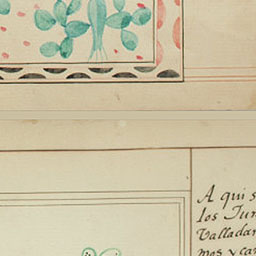 A qui s
los Jur
Valladar
mos y car